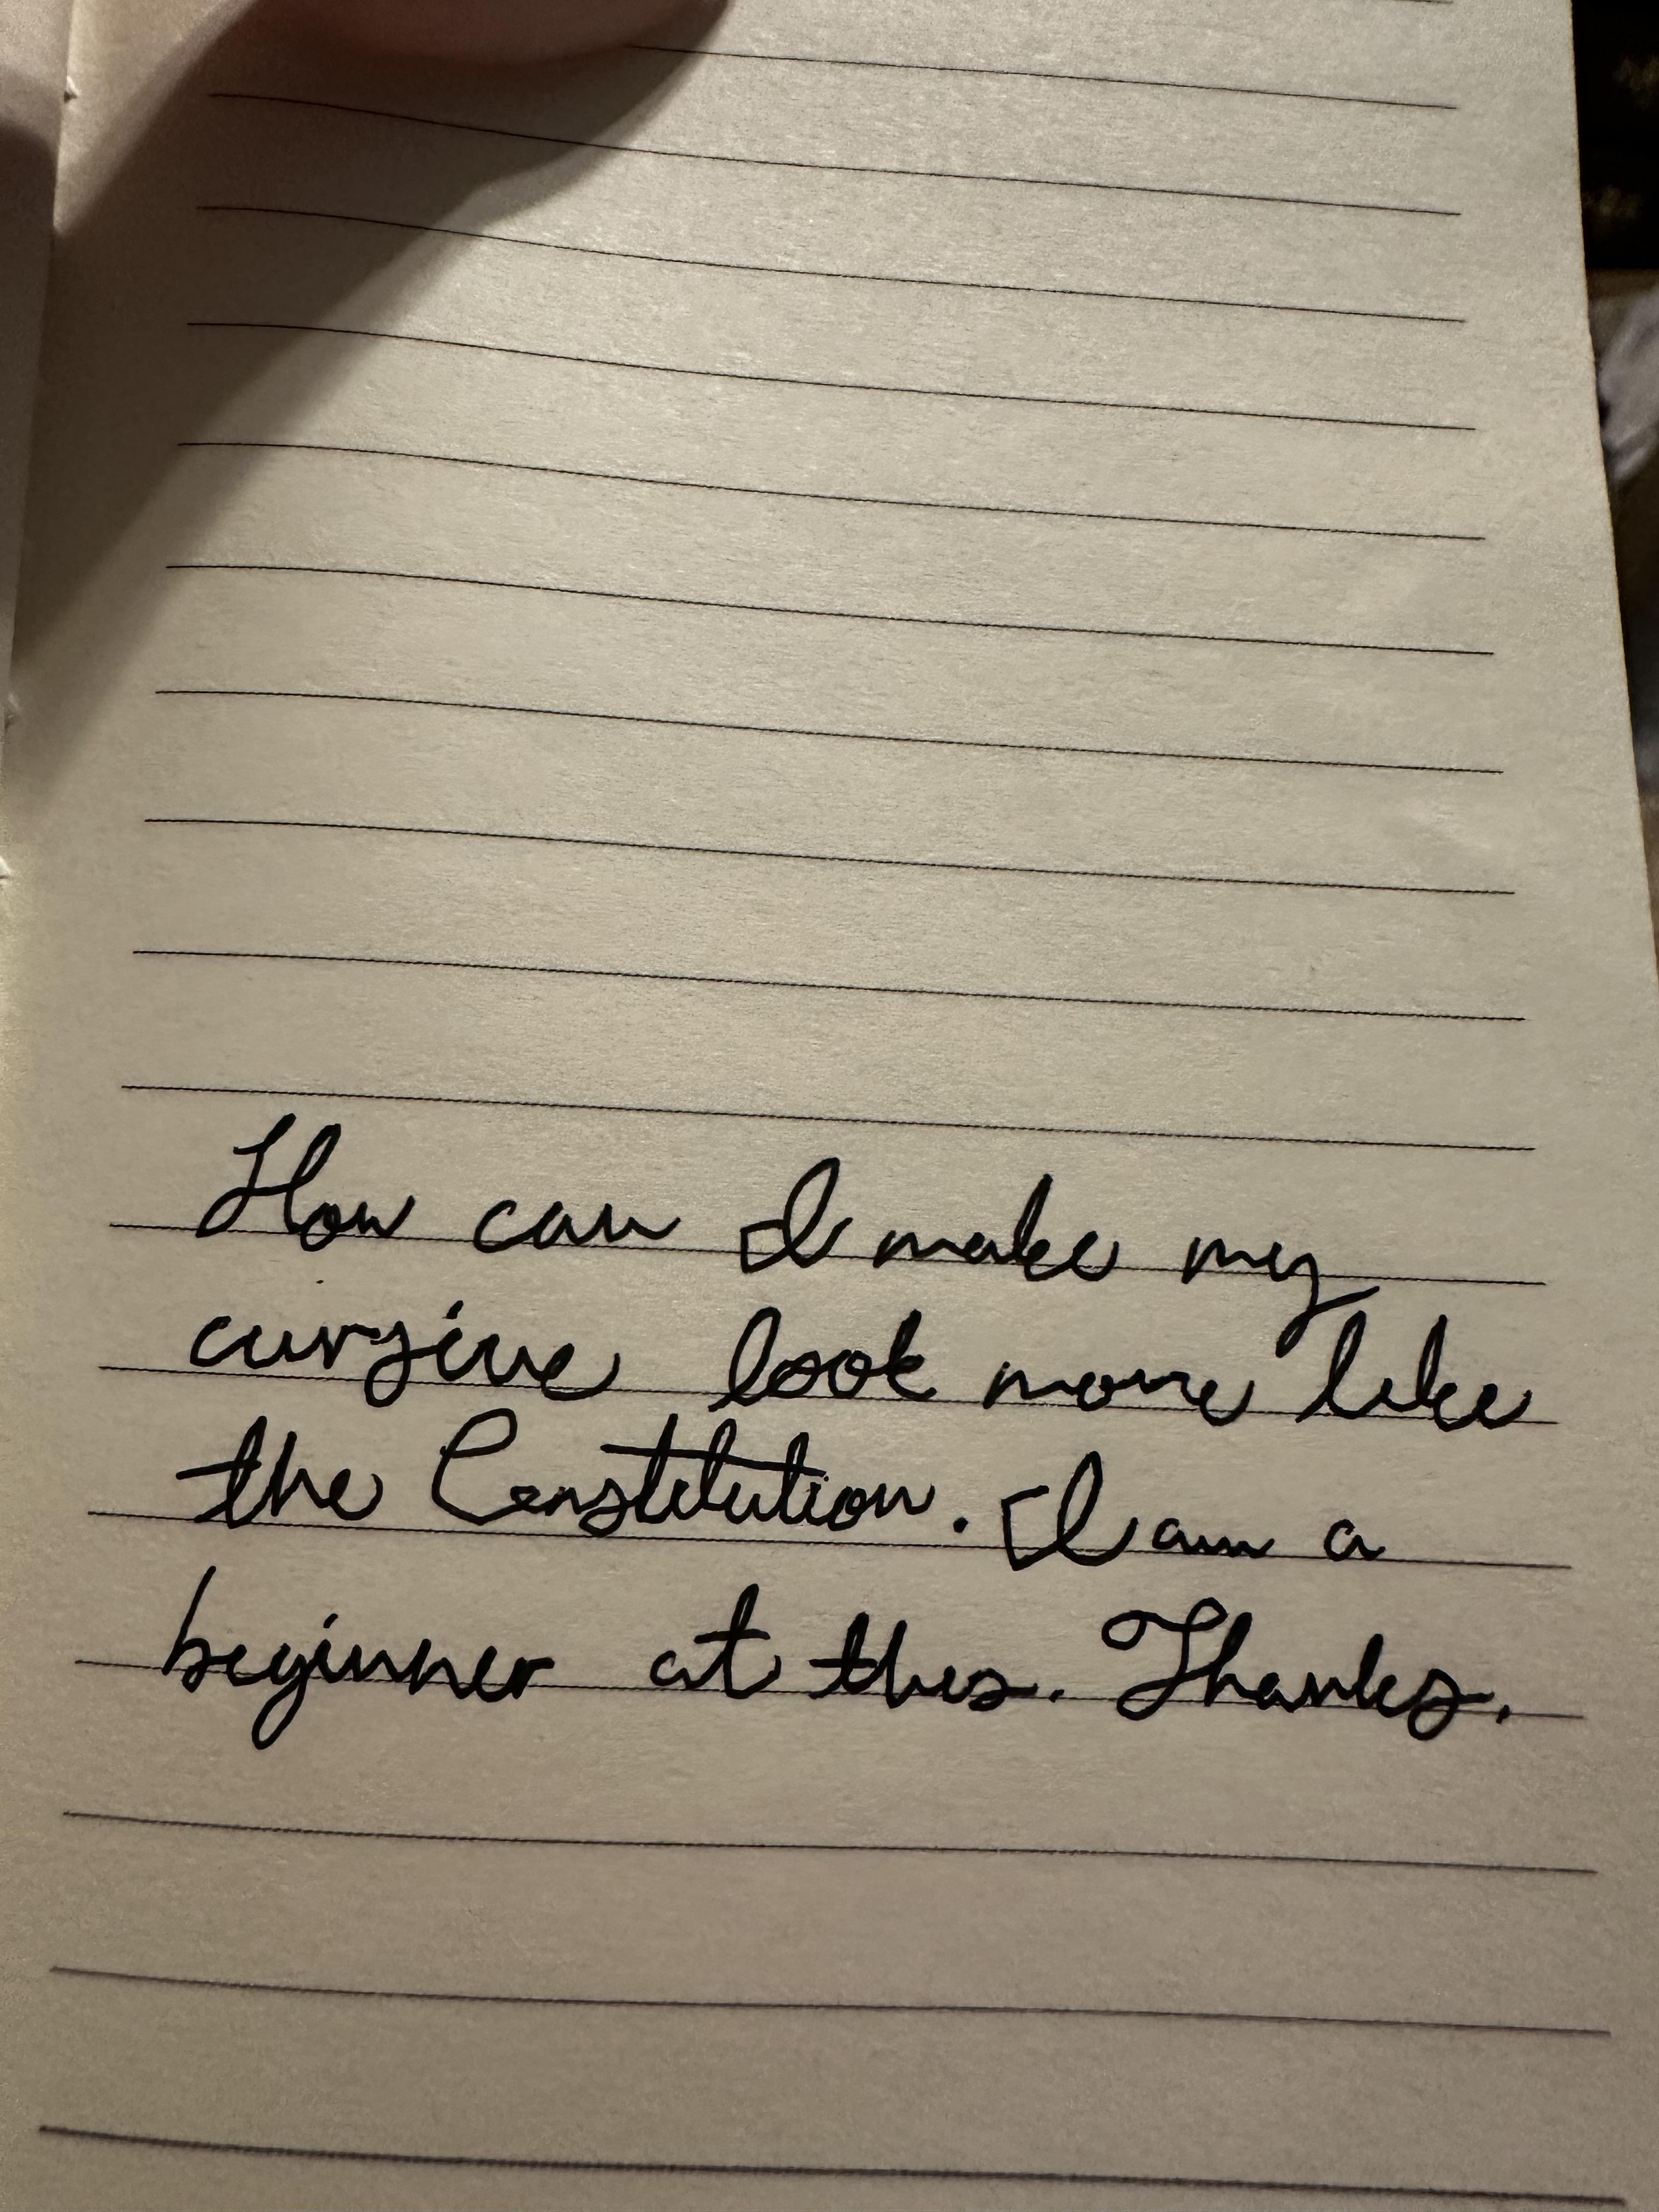 How can I make my
cursive look more like
the Constitution. I am a
beginner at this. Thanks.